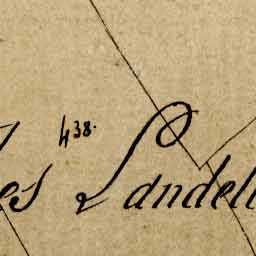 438.
les Landell